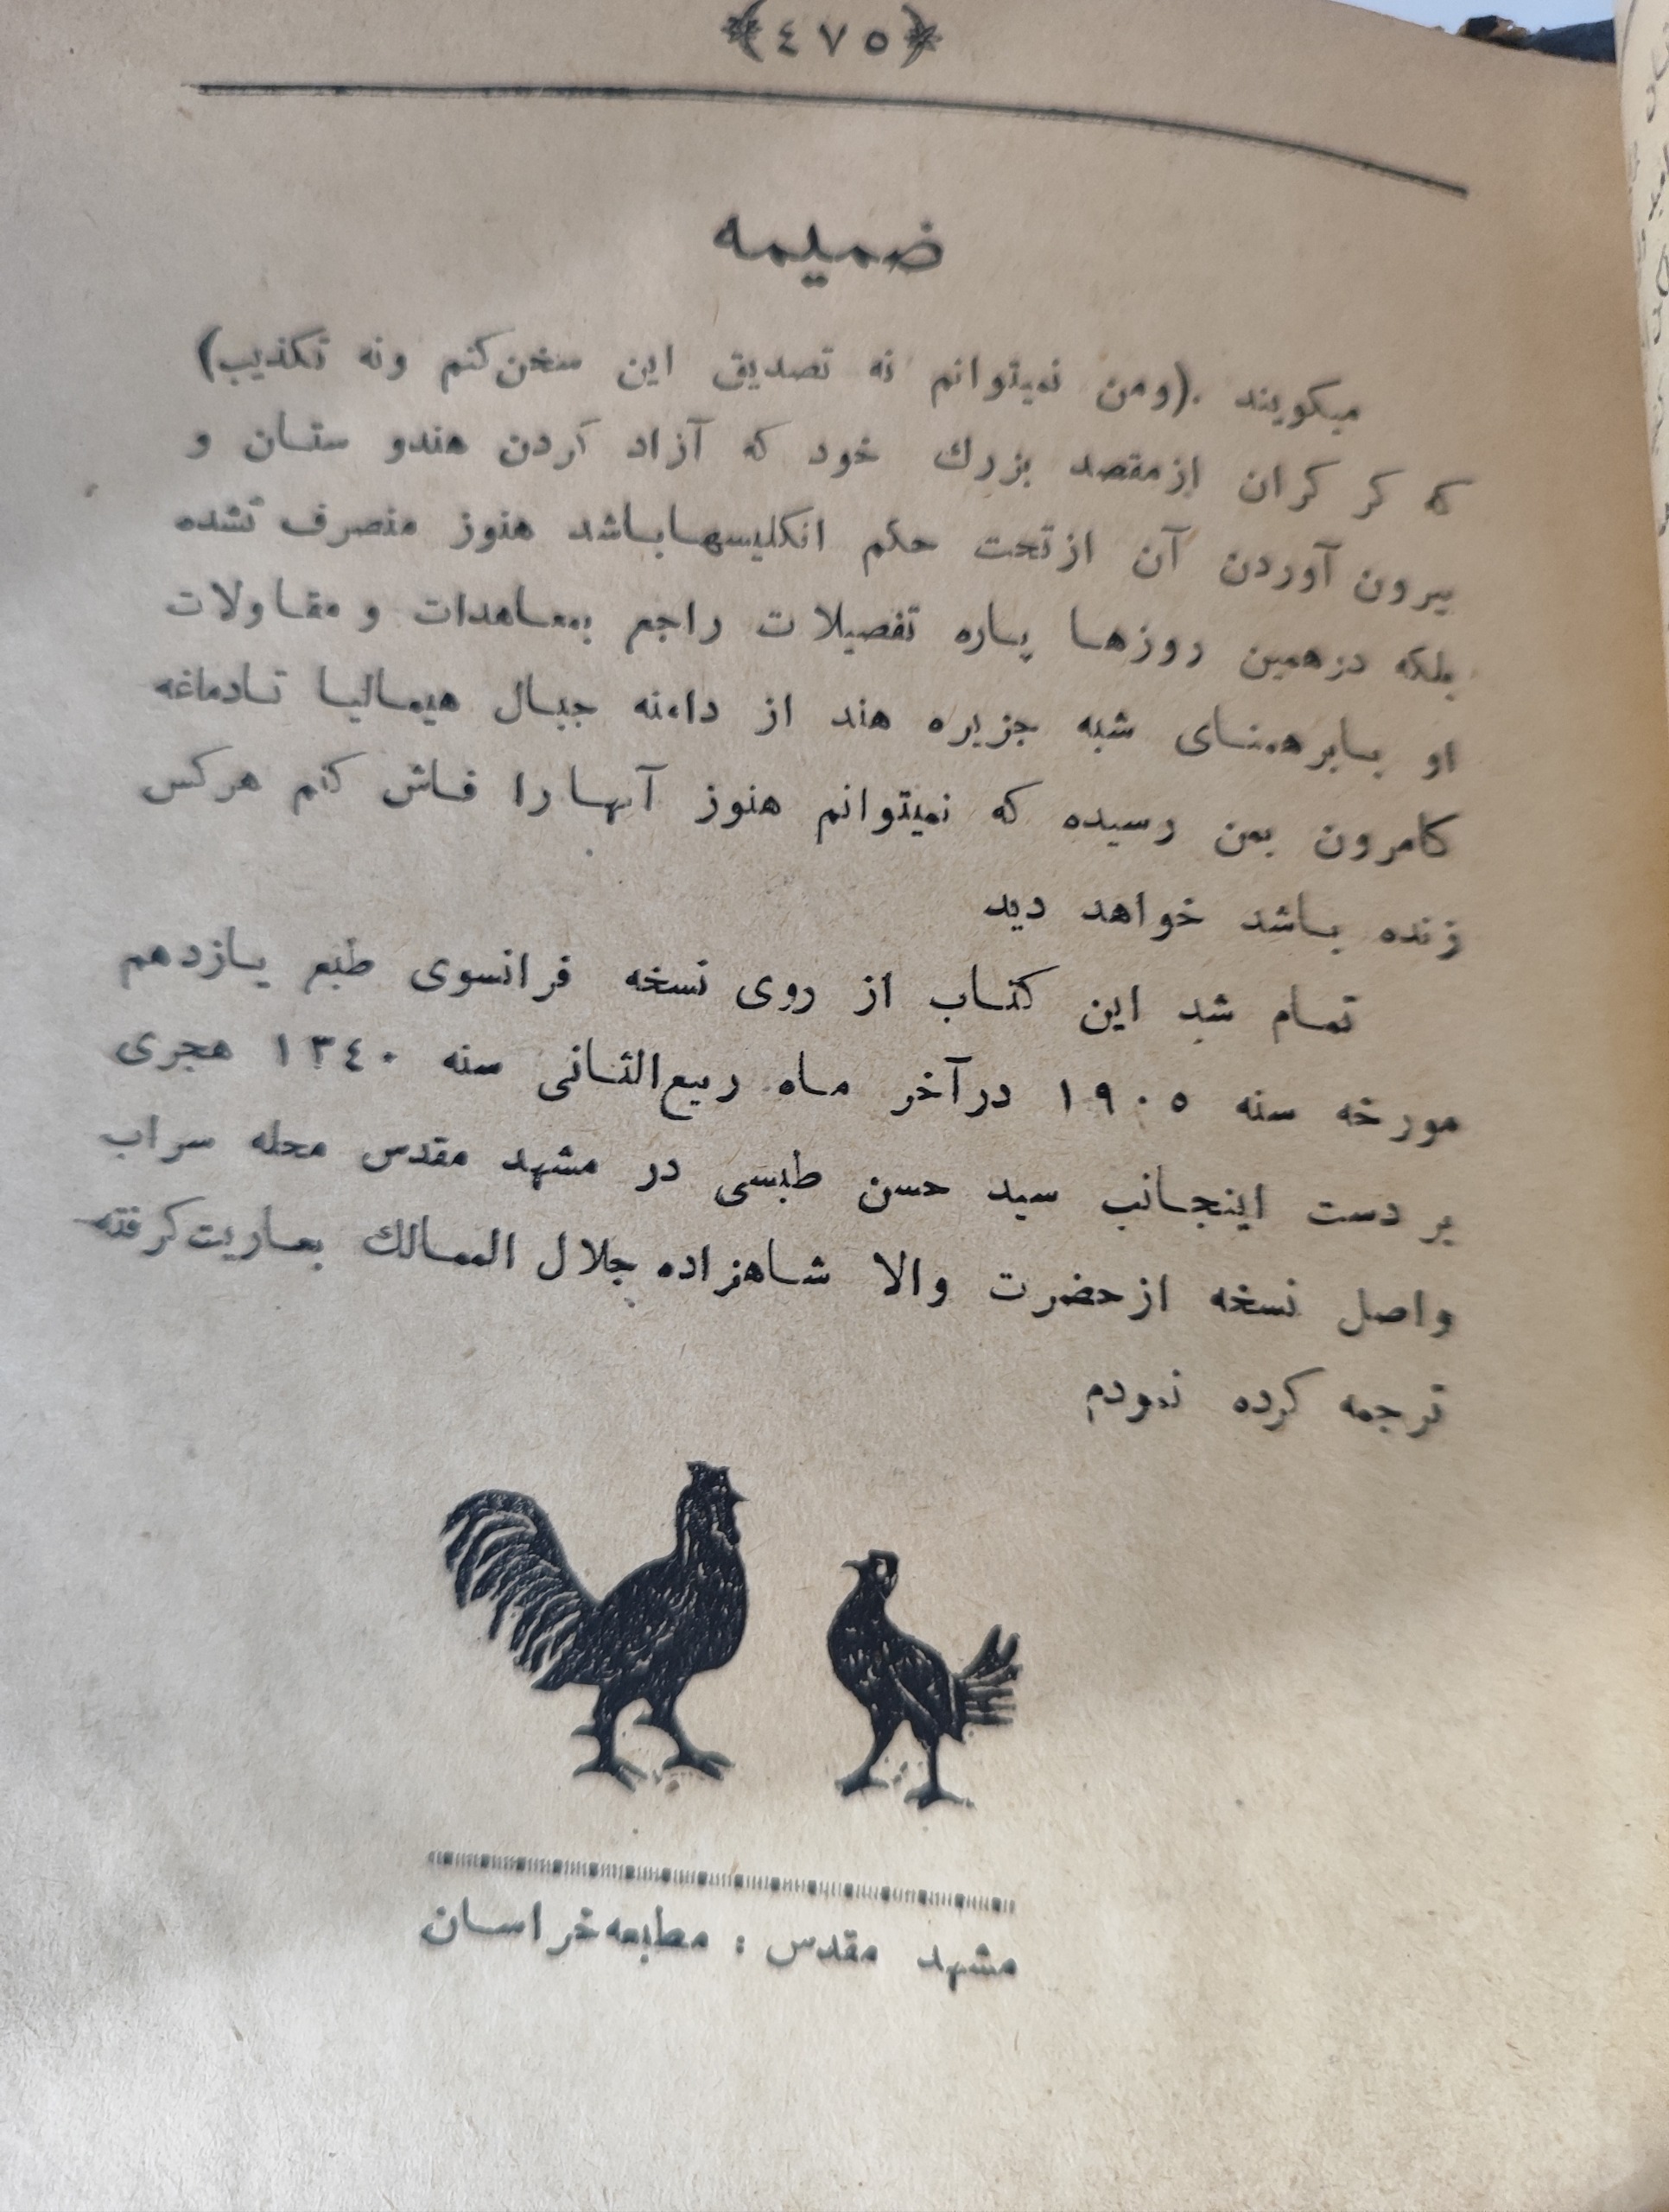 ﴿٤٧٥﴾
ضمیمه
میکویند .(ومن نمیتوانم نه تصدیق این سخن کنم ونه تکذیب)
که کر کران ازمقصد بزرك خود که آزاد کردن هندو ستان و
بیرون آوردن آن ازتحت حکم انکلیسهاباشد هنوز منصرف نشده
بلکه درهمین روزها پاره تفصیلات راجع بمعاهدات و مقاولات
او بابرهمنای شبه جزیره هند از دامنه جبال هیمالیا تادماغه
کامرون بمن رسیده که نمیتوانم هنوز آنهارا فاش کنم هرکس
زنده باشد خواهد دید
تمام شد این کتاب از روی نسخه فرانسوی طبع یازدهم
مورخه سنه ١٩٠٥ درآخر ماه ربیع‌الثانی سنه ١٣٤٠ هجری
بر دست اینجانب سید حسن طبسی در مشهد مقدس محله سراب
واصل نسخه ازحضرت والا شاهزاده جلال الممالك بعاریت کرفته
ترجمه کرده نمودم
مشهد مقدس : مطبعه خراسان